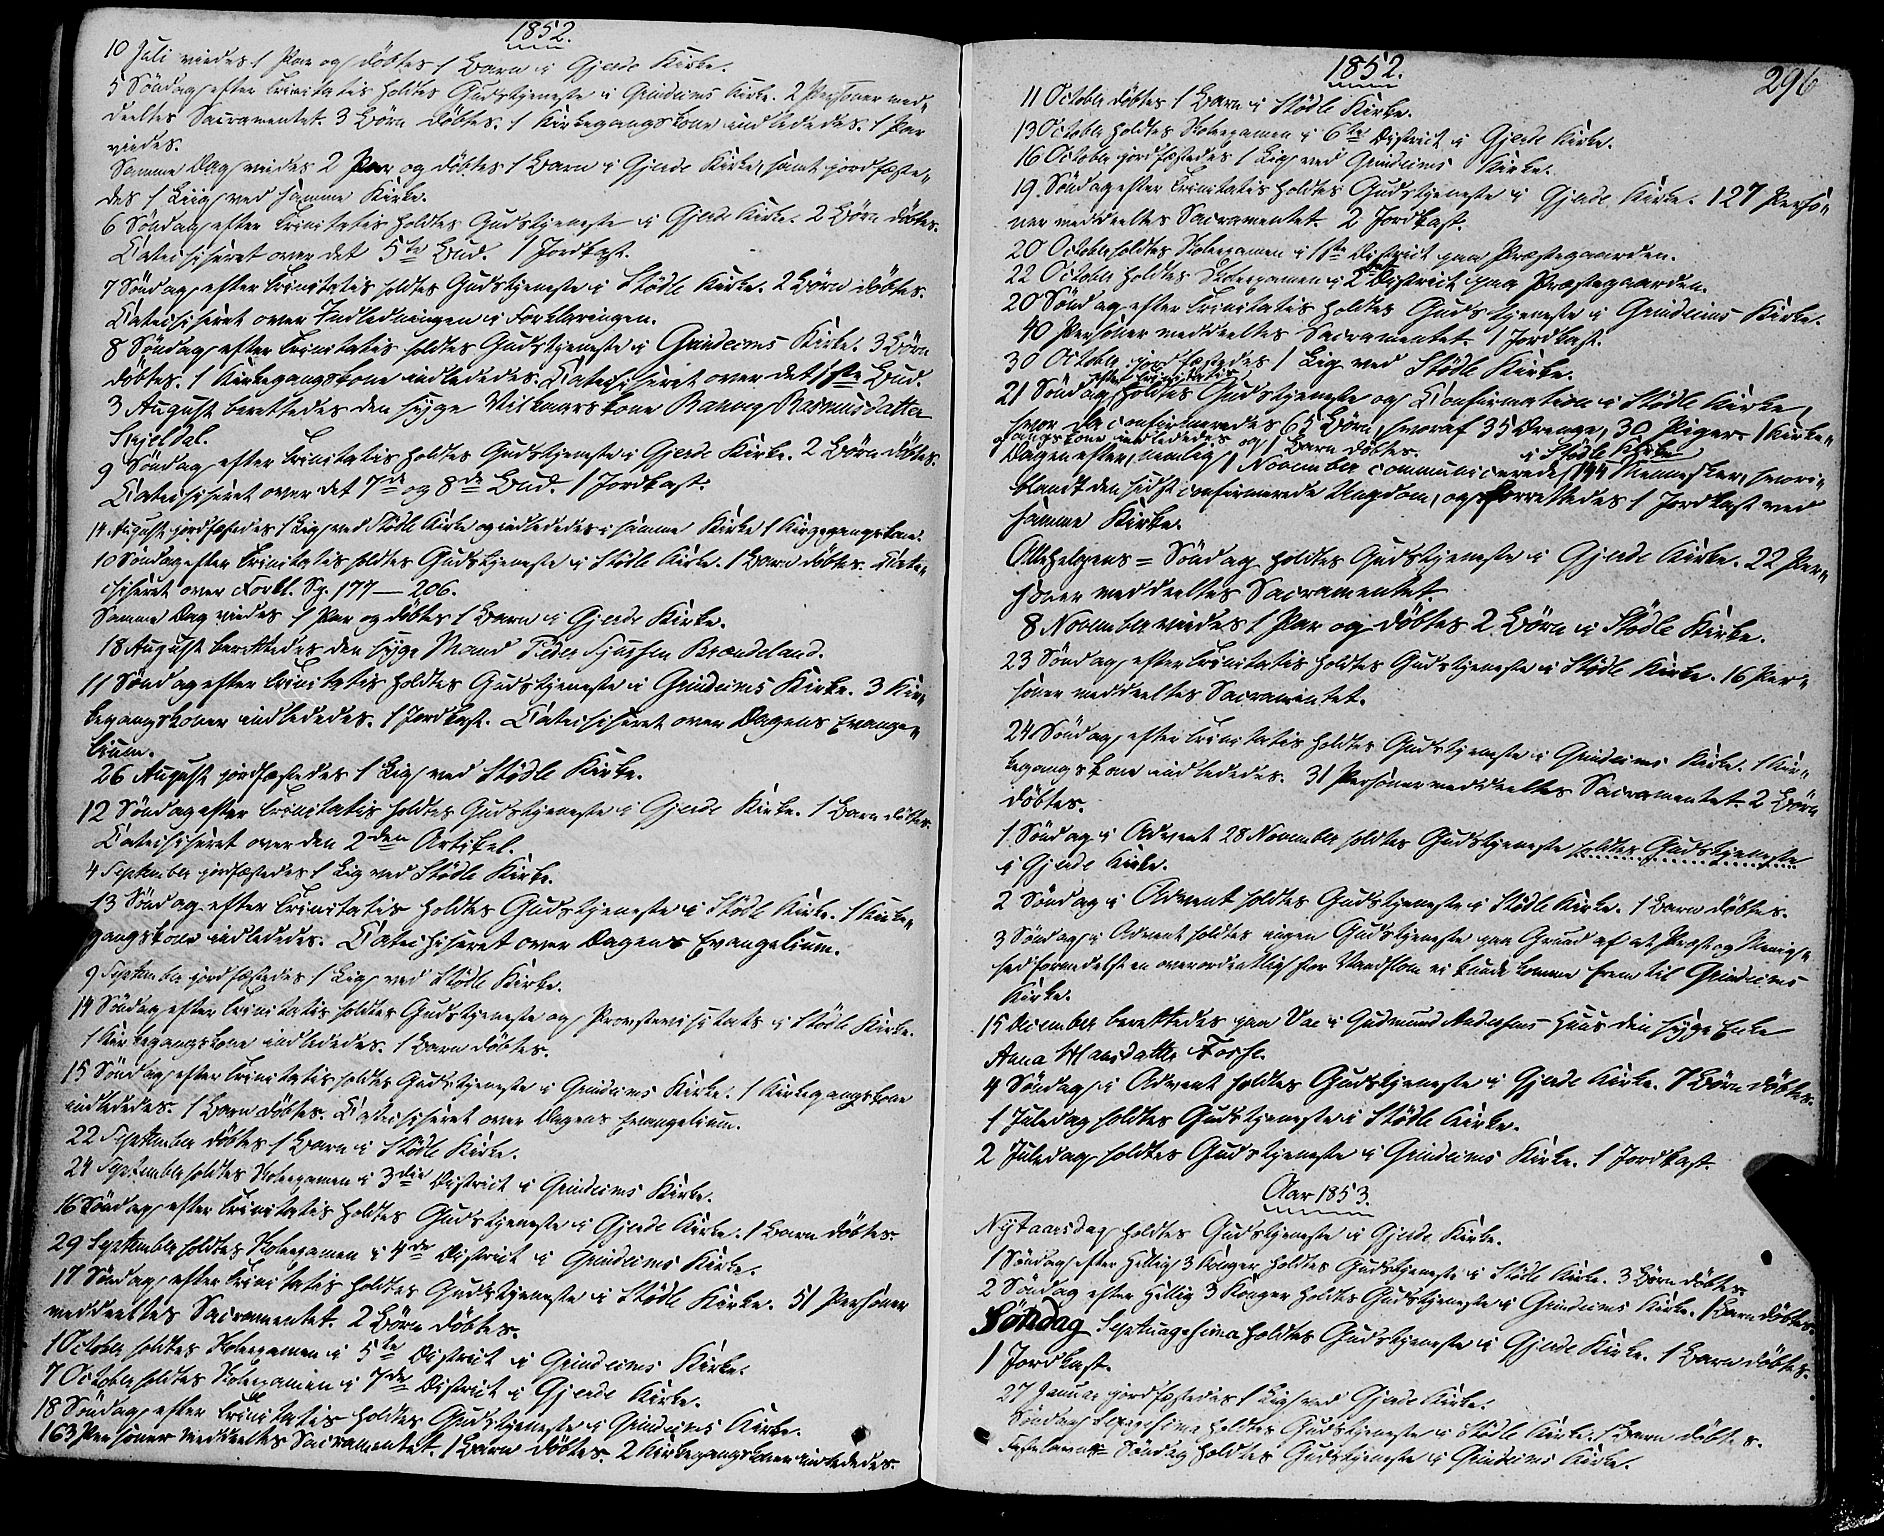 1852.
10 Juli viedes 1 Par og døbtes 1 Barn i Gjerde Kirke.
5 Søndag efter Trinitatis holdtes Gudstjeneste i Grindeims Kirke. 2 Personer med-
deeltes Sacramentet. 3 Børn døbtes. 1 Kirkegangskone indlededes. 1 Par
viedes.
Samme Dag viedes 2 Par og døbtes 1 Barn i Gjerde Kirke, samt jordfæste-
des 1 Liig ved samme Kirke.
6 Søndag efter Trinitatis holdtes Gudstjeneste i Gjerde Kirke. 2 Børn døbtes.
Catechiseret over det 5te Bud. 1 Jordkast.
7 Søndag efter Trinitatis holdtes Gudstjeneste i Stødle Kirke. 2 Børn døbtes.
Catechiseret over Indledningen i Forklaringen.
8 Søndag efter Trinitatis holdtes Gudstjeneste i Grindeims Kirke. 3 Børn
døbtes. 1 Kirkegangskone indlededes. Catechiseret over det 1ste Bud.
3 August berettedes den syge Vilkaarskone Rasmusdatter
Skjeldal.
9 Søndag efter Trinitatis holdtes Gudstjeneste i Gjerde Kirke. 2 Børn døbtes.
Catechiseret over det 7de og 8de Bud. 1 Jordkast.
14. August jordfæstedes 1 Lig ved Stødle Kirke og indlededes i samme Kirke 1 Kirkegangskone.
10 Søndag efter Trinitatis holdtes Gudstjeneste i Stødle Kirke. 1 Barn døbtes. Cate-
chiseret over Forkl. Sp. 177 — 206.
Samme Dag viedes 1 Par og døbtes 1 Barn i Gjerde Kirke.
18 August berettedes den syge Mand Peder Brændeland.
11 Søndag efter Trinitatis holdtes Gudstjeneste i Grindeims Kirke. 3 Kir-
kegangskoner indlededes. 1 Jordkast. Catechiseret over Dagens Evange-
lium.
26 August jordfæstedes 1 Lig ved Stødle Kirke.
12 Søndag efter Trinitatis holdtes Gudstjeneste i Gjerde Kirke. 1 Barn døbtes.
Catechiseret over den 2den Artikel.
4 September jordfæstedes 1 Lig ved Stødle Kirke.
13 Søndag efter Trinitatis holdtes Gudstjeneste i Stødle Kirke. 1 Kirke-
gangskone indlededes. Catechiseret over Dagens Evangelium.
9 September jordfæstedes 1 Lig ved Stødle Kirke.
14 Søndag efter Trinitatis holdtes Gudstjeneste og Provstevisitats i Stødle Kirke.
1 Kirkegangskone indlededes. 1 Barn døbtes.
15 Søndag efter Trinitatis holdtes Gudstjeneste i Grindeims Kirke. 1 Kirkegangskone
indlededes. 1 Barn døbtes. Catechiseret over Dagens Evangelium.
22 September døbtes 1 Barn i Stødle Kirke.
24 September holdtes Skoleexamen i 3die District i Grindeims Kirke.
16 Søndag efter Trinitatis holdtes Gudstjeneste i Gjerde Kirke. 1 Barn døbtes
29 September holdtes Skoleexamen i 4de District i Grindeims Kirke.
17 Søndag efter Trinitatis holdtes Gudstjeneste i Stødle Kirke. 51 Personer
meddeeltes Sacramentet. 2 Børn døbtes.
1 October holdtes Skoleexamen i 5te District i Grindeims Kirke.
7 October holdtes Skoleexamen i 7de District i Gjerde Kirke.
18 Søndag efter Trinitatis holdtes Gudstjeneste i Grindeims Kirke.
163 Personer meddeeltes Sacramentet. 1 Barn døbtes. 2 Kirkegangskoner indlededes.
1852.
296
11 October døbtes 1 Barn i Stødle Kirke.
13 October holdtes Skoleexamen i 6te District i Gjerde Kirke.
16 October jordfæstedes 1 Lig ved Grindeims Kirke.
19. Søndag efter Trinitatis holdtes Gudstjeneste i Gjerde Kirke. 127 Perso-
ner meddeeltes Sacramentet. 2 Jordkast.
20 October holdtes Skoleexamen i 1ste District paa Præstegaarden.
22 October holdtes Skoleexamen i 2det District paa Præstegaarden.
20 Søndag efter Trinitatis holdtes Gudstjeneste i Grindeims Kirke.
40 Personer meddeeltes Sacramentet. 1 Jordkast.
30 October jordfæstedes 1 Lig ved Stødle Kirke.
21 Søndag efter Trinitatis holdtes Gudstjeneste og Confirmation i Stødle Kirke,
hvor da confirmeredes 65 Børn, hvoraf 35 Drenge, 30 Piger. 1 Kirke-
gangskone indlededes og 1 Barn døbtes.
Dagen efter, nemlig 1 November communicerede i Stødle Kirke 144 Mennesker, hvori-
blandt den sidst confirmerede Ungdom, og forrettedes 1 Jordkast ved
samme Kirke.
Allehelgens-Søndag holdtes Gudstjeneste i Gjerde Kirke. 22 Per-
soner meddeeltes Sacramentet.
8 November viedes 1 Par og døbtes 2 Børn i Stødle Kirke.
23 Søndag efter Trinitatis holdtes Gudstjeneste i Stødle Kirke. 16 Per-
soner meddeeltes Sacramentet.
24 Søndag efter Trinitatis holdtes Gudstjeneste i Grindeims Kirke. 1 Kir-
kegangskone indlededes. 31 Personer meddeeltes Sacramentet. 2 Børn
døbtes.
1 Søndag i Advent 28 November holdtes Gudstjeneste holdtes Gudstjeneste
i Gjerde Kirke.
2 Søndag i Advent holdtes Gudstjeneste i Stødle Kirke. 1 Barn døbtes.
3 Søndag i Advent holdtes ingen Gudstjeneste paa Grund af at Præst og Menig-
hed formedelst en overordentlig stor Vandflom ei kunde komme frem til Grindeims
Kirke.
15 December berettedes paa Vae i Gudmund Andersens Huus den syge Enke
Anna Fosse.
4 Søndag i Advent holdtes Gudstjeneste i Gjerde Kirke. 7 Børn døbtes.
1 Juledag holdtes Gudstjeneste i Stødle Kirke.
2 Juledag holdtes Gudstjeneste i Grindeims Kirke. 1 Jordkast.
Aar 1853.
Nytaarsdag holdtes Gudstjeneste i Gjerde Kirke.
1 Søndag efter Hellig 3 Konger holdtes Gudstjeneste i Stødle Kirke. 3 Børn døbtes.
2 Søndag efter Hellig 3 Konger holdtes Gudstjeneste i Grindeims Kirke. 1 Barn døbtes.
Søndag Septuagesima holdtes Gudstjeneste i Gjerde Kirke. 1 Barn døbtes.
1 Jordkast.
27 Januar jordfæstedes 1 Lig ved Gjerde Kirke.
Søndag Sexagesima holdtes Gudstjeneste i Stødle Kirke. 1 Barn døbtes.
Fastelavns Søndag holdtes Gudstjeneste i Grindeims Kirke.